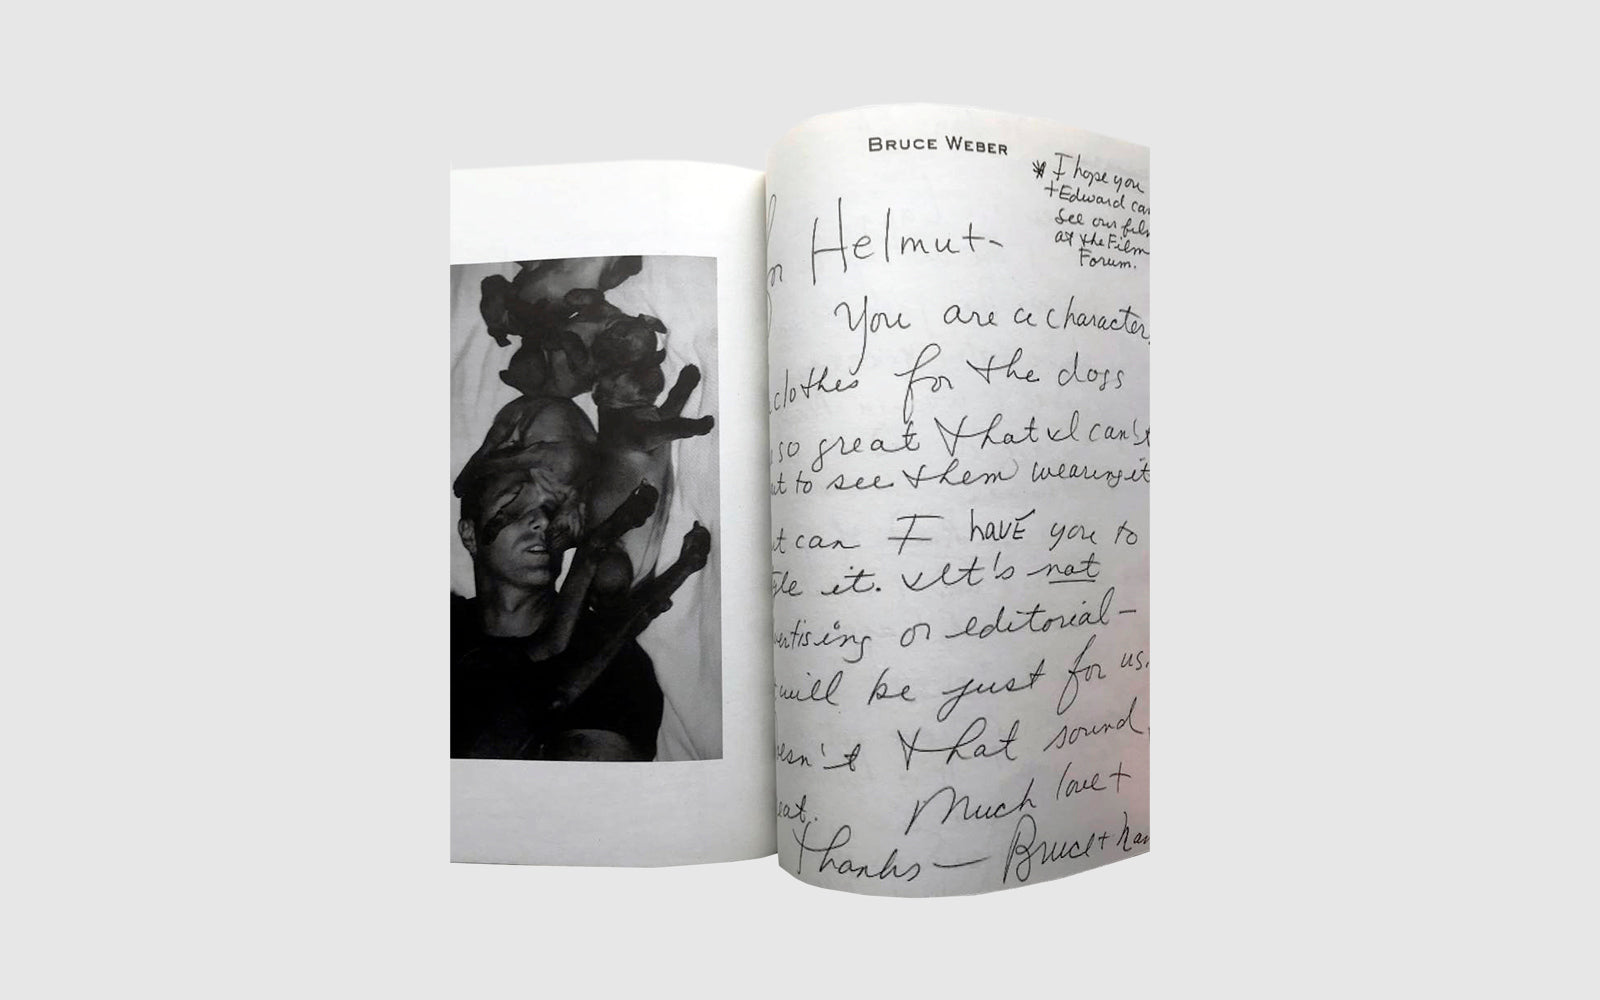 BRUCE WEBER
* I hope you
+ Edward can
see our film
at the Film
Forum.
for Helmut-
You are a character,
clothes for the dogs
so great that I can't
to see them wearing it
can I have you to
it. It's not
or editorial-
will be just for us.
that sound
Much love +
Thanks — Bruce +